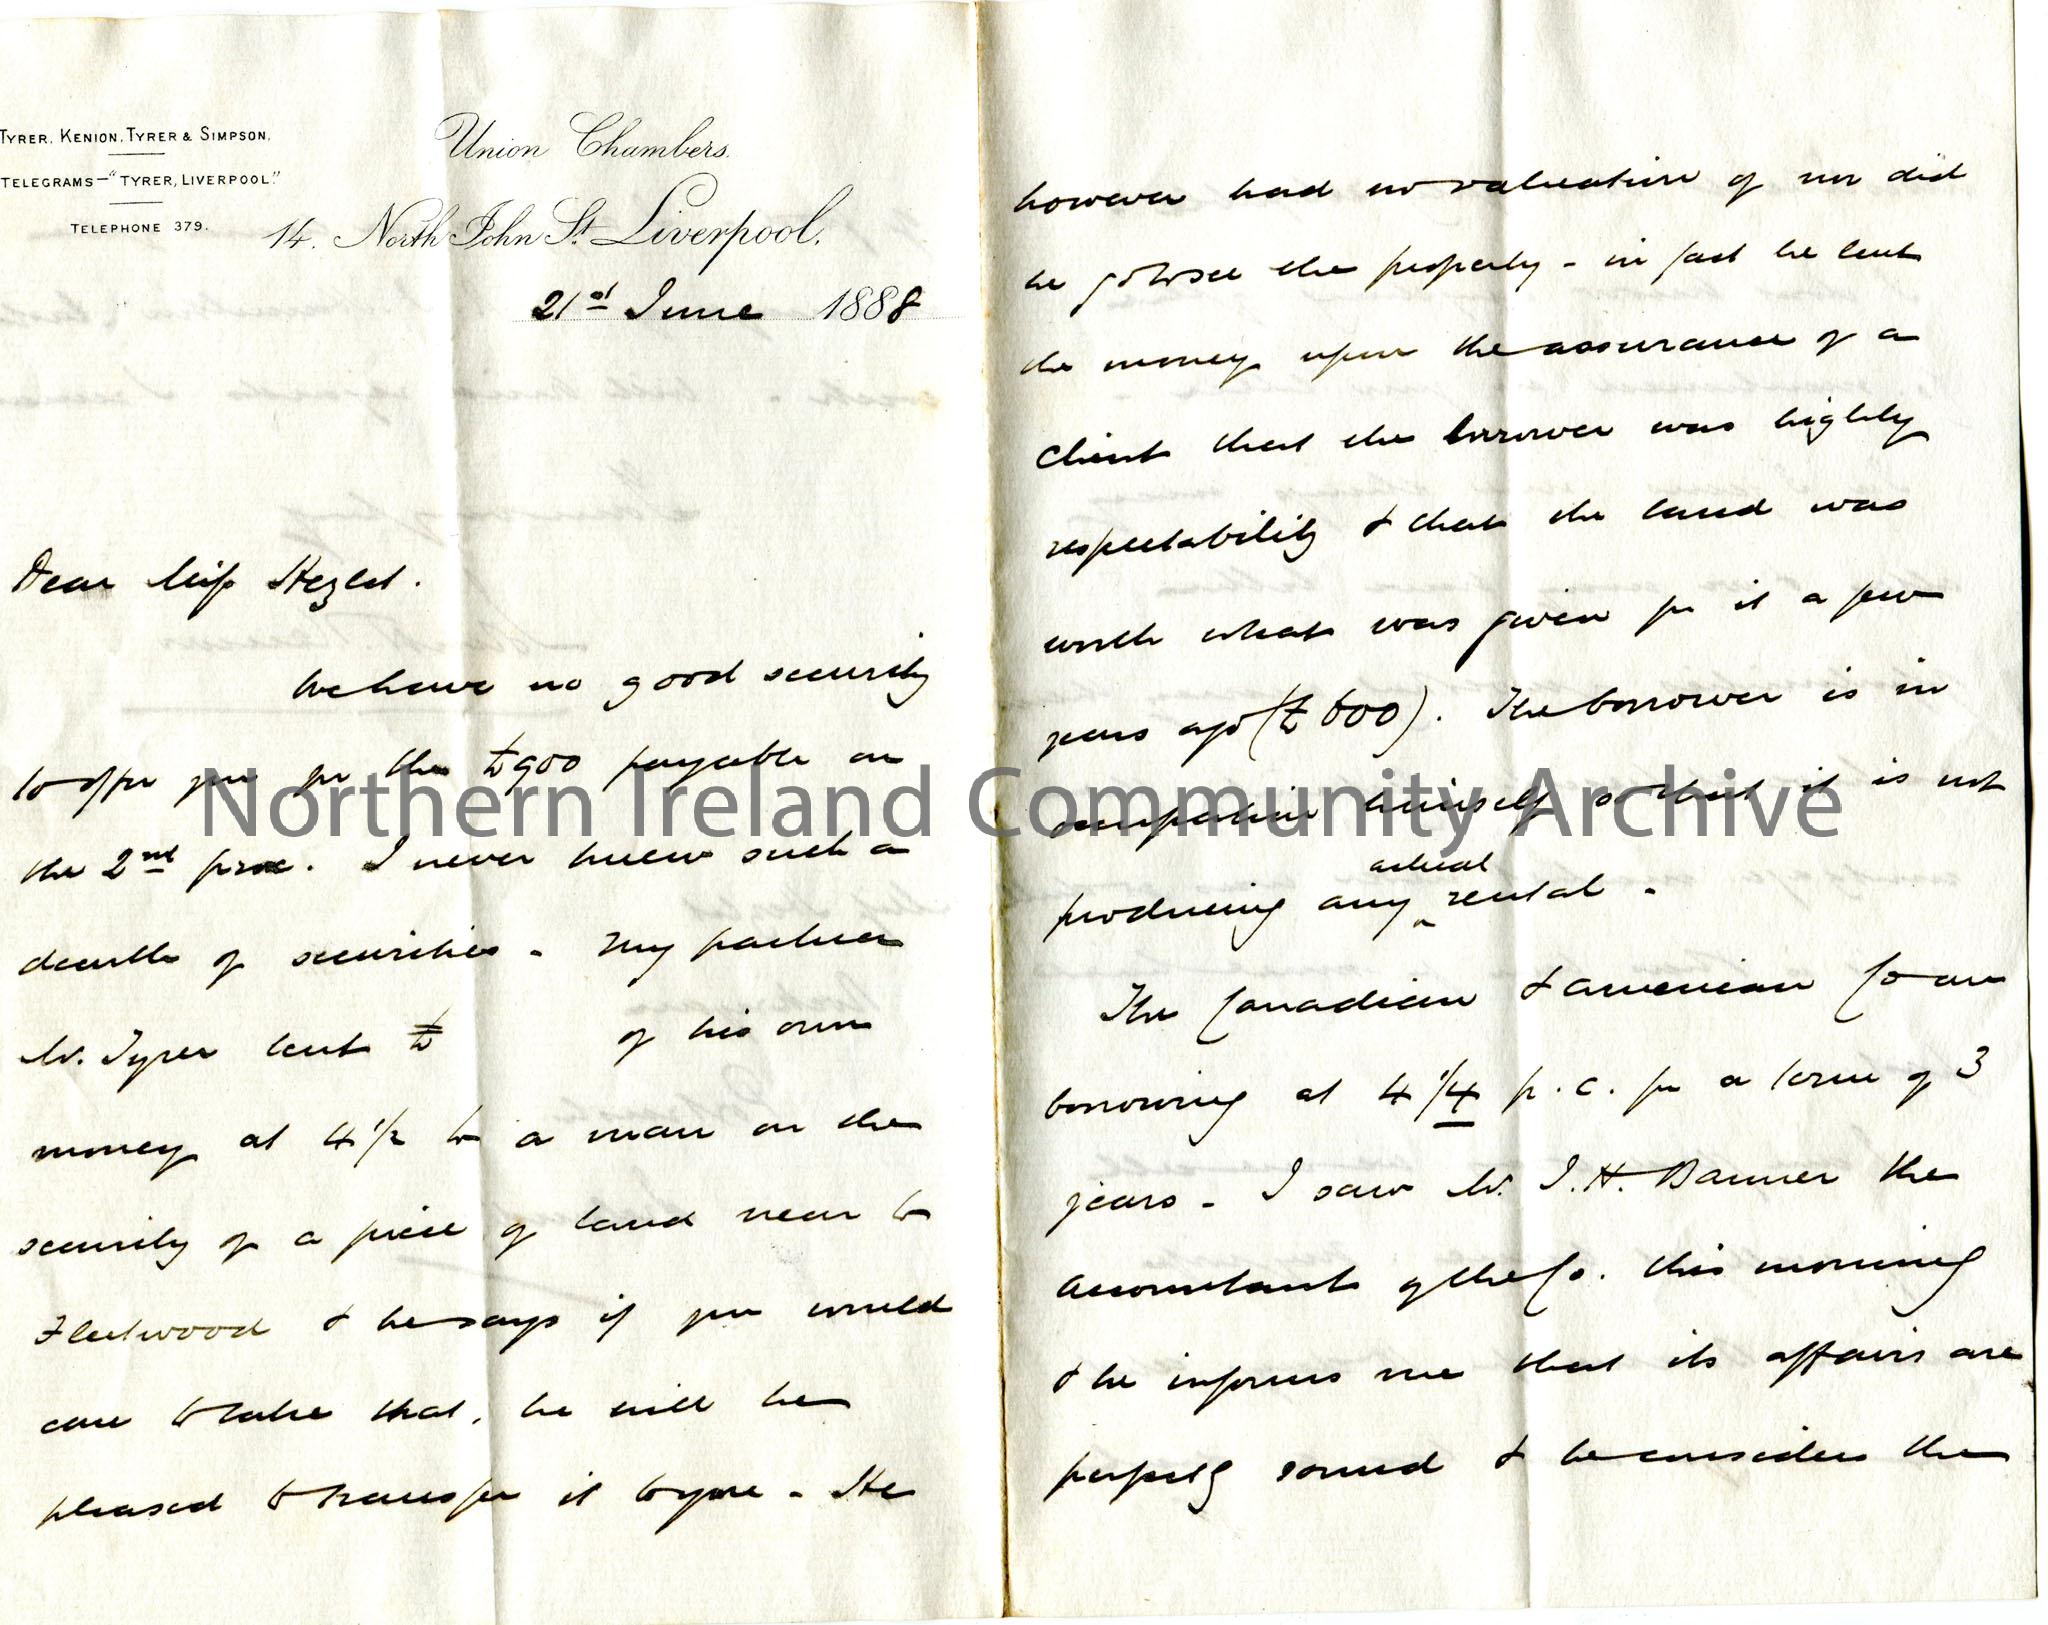 TYRER, KENION, TYRER & SIMPSON.
TELEGRAMS—"TYRER, LIVERPOOL."
TELEPHONE 379.
Union Chambers.
14. North John St. Liverpool.
21st June 1888
Dear Miss Hezlet.
We have no good security
to offer you for the £900 payable on
the 2nd prox. I never knew such a
dearth of securities - My partner
Mr. Tyrer lent £ of his own
money at 4 1/2 to a man on the
security of a piece of land near to
Fleetwood & he says if you would
care to take that, he will be
pleased to transfer it to you - He
however had no valuation of nor did
he go to see the property - in fact he lent
the money upon the assurance of a
client that the borrower was highly
respectability & that the land was
worth what was given for it a few
years ago (£600). The borrower is in
occupation himself so that it is not
producing any actual rental -
The Canadian & American Co are
borrowing at 4 1/4 p.c. for a term of 3
years - I saw Mr. J.H. Banner the
accountant of the Co. this morning
& he informs me that its affairs are
perfectly sound & he considers the
Northern Ireland Community Archive